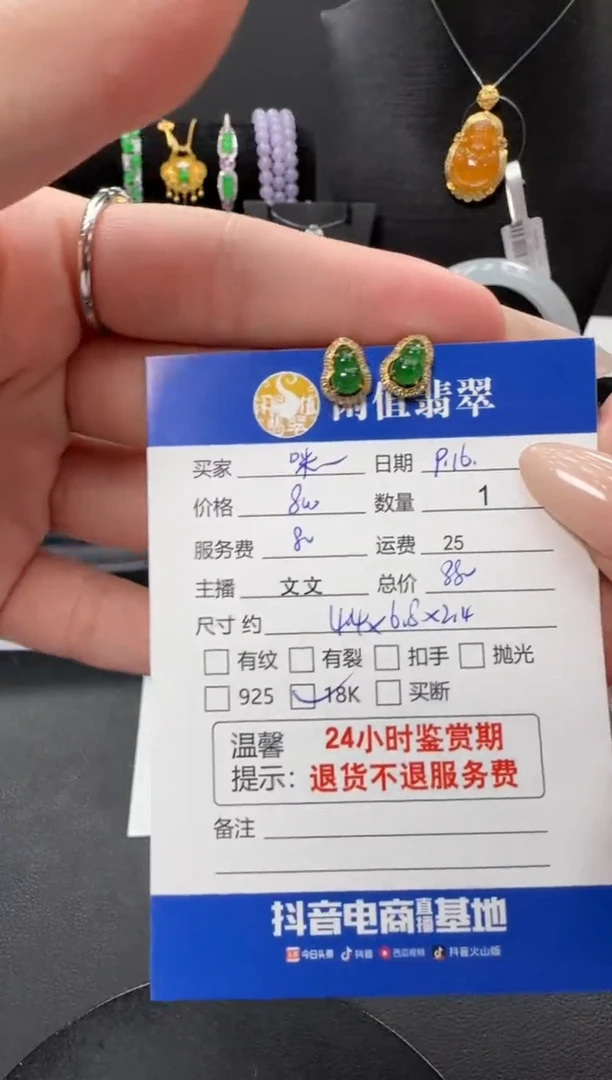 闲值翡翠
买家 咪 日期 9.16.
价格 8w 数量 1
服务费 运费 25
主播 文文 总价
尺寸 约 4.4×6.8×2.4
有纹 有裂 扣手 抛光
925 18K 买断
温馨 24小时鉴赏期
提示: 退货不退服务费
备注
抖音电商直播基地
今日头条 抖音 西瓜视频 抖音火山版